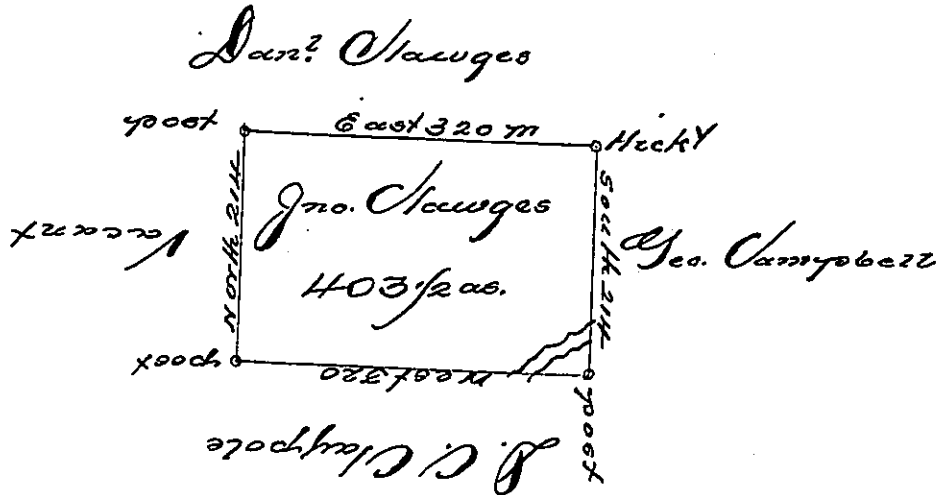 Danl Clawges
post
East 320 m
Hicky
Vacant
North 214
Jno. Clawges
403 1/2 as.
South 214
Geo. Campbell
post
West 320
post
D. C. Claypole